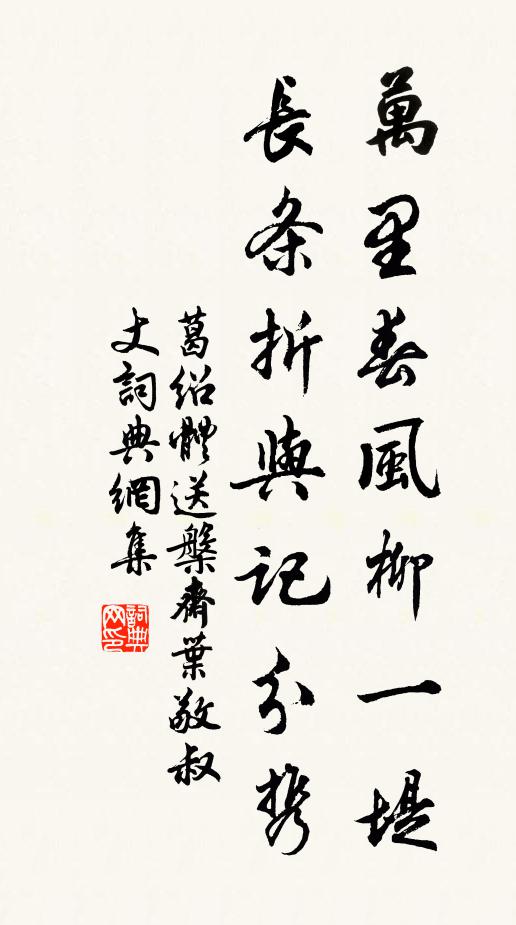 萬里春風柳一堤
長条折與記分携
葛紹體送槃齋葉敬叔
丈詞典網集
詞典網印